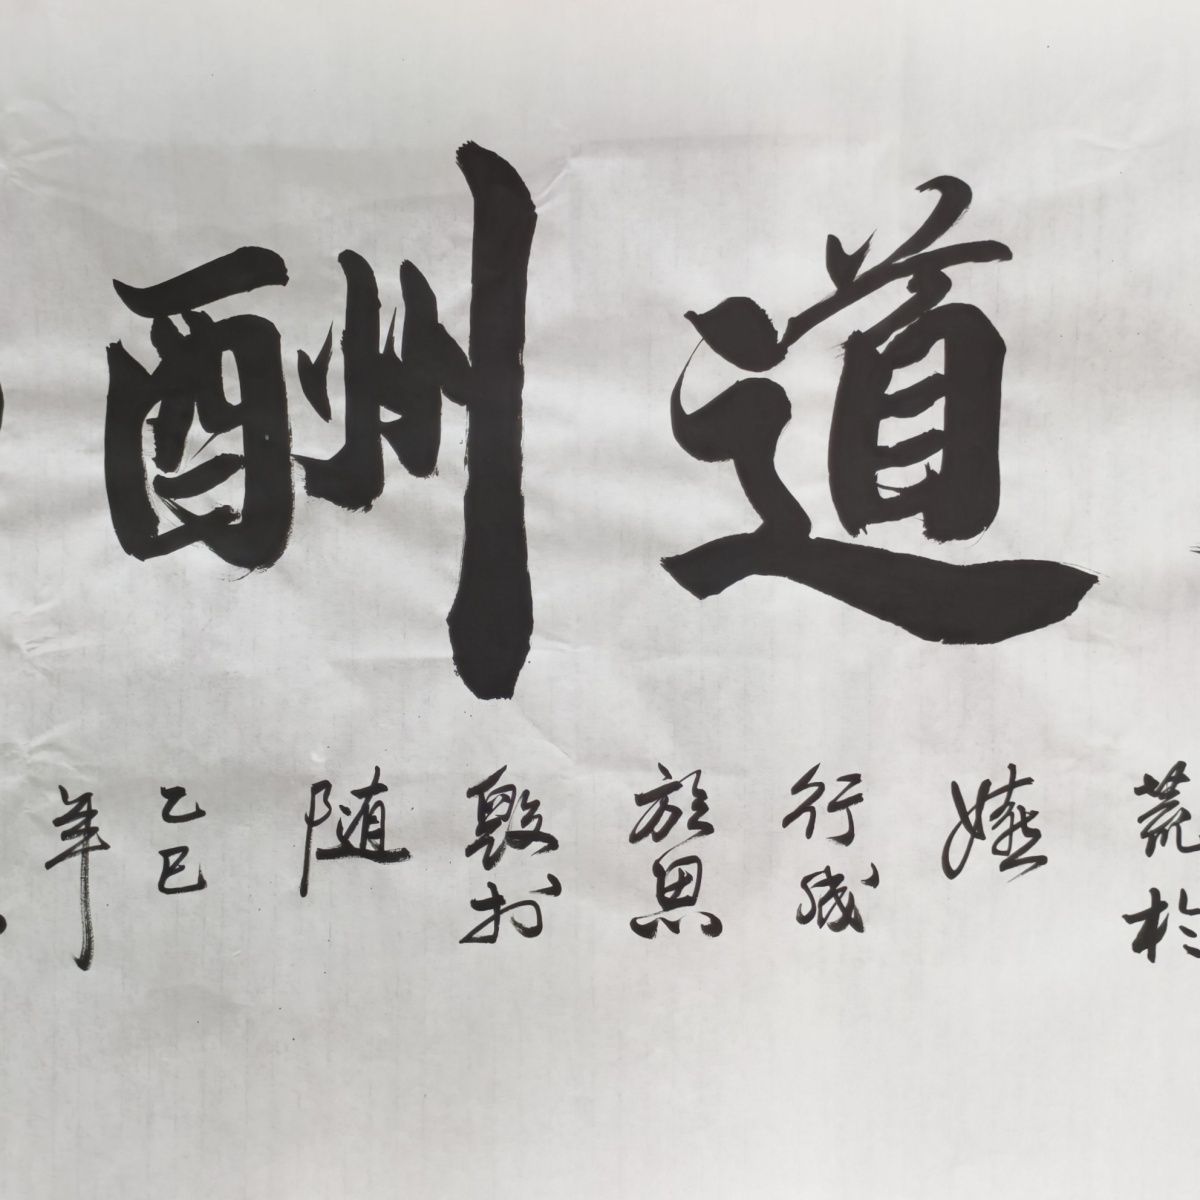 道酬
荒於
嬉
行成
於思
毁於
随
乙巳
年